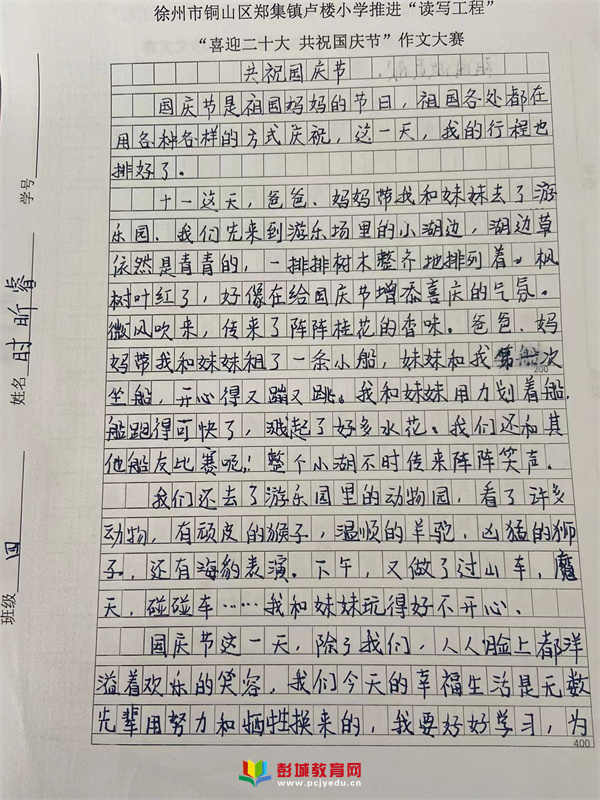 徐州市铜山区郑集镇卢楼小学推进“读写工程”
“喜迎二十大 共祝国庆节”作文大赛
共祝国庆节
国庆节是祖国妈妈的节日，祖国各处都在
用各种各样的方式庆祝，这一天，我的行程也
排好了。
十一这天，爸爸、妈妈带我和妹妹去了游
乐园、我们先来到游乐场里的小湖边，湖边草
依然是青青的，一排排树木整齐地排列着。枫
树叶红了，好像在给国庆节增添喜庆的气氛。
微风吹来，传来了阵阵桂花的香味。爸爸、妈
妈带我和妹妹租了一条小船，妹妹和我第一次
200
坐船，开心得又蹦又跳。我和妹妹用力划着船，
船跑得可快了，溅起了好多水花。我们还和其
他船友比赛呢！整个小湖不时传来阵阵笑声。
我们还去了游乐园里的动物园，看了许多
动物，有顽皮的猴子，温顺的羊驼，凶猛的狮
子，还有海豹表演。下午，又做了过山车，魔
天，碰碰车……我和妹妹玩得好不开心。
国庆节这一天，除了我们，人人脸上都洋
溢着欢乐的笑容，我们今天的幸福生活是无数
先辈用努力和牺牲换来的，我要好好学习，为
400
班级 四 姓名 时昕睿 学号
彭城教育网
www.pcjyedu.cn